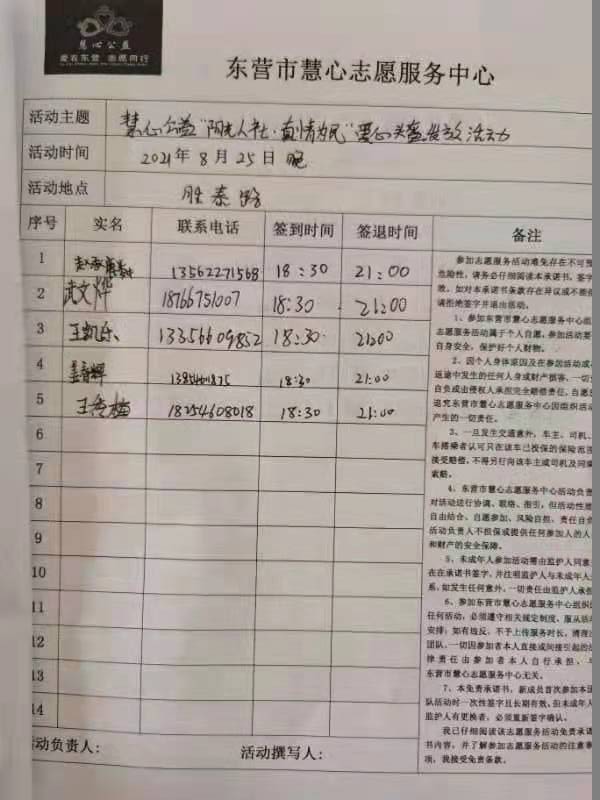 慧心公益
爱在东营 志愿同行
东营市慧心志愿服务中心
活动主题 慧心公益"阳光人社·真情为民"爱心头盔发放活动
活动时间 2021年8月25日晚
活动地点 胜泰路
序号 实名 联系电话 签到时间 签退时间 备注
1 13562271568 18:30 21:00
2 武文烨 18766751007 18:30 21:00
3 王凯乐 13356609852 18:30 21:00
4 18:30 21:00
5 18254608018 18:30 21:00
6
7
8
9
10
11
12
13
14
参加志愿服务活动难免存在不可预
危险性,请务必仔细阅读本承诺书。签字
效。如对本承诺书条款存在异议或不能接
请拒绝签字并退出活动。
1、参加东营市慧心志愿服务中心组
志愿服务活动属于个人自愿,参加活动要
自身安全,保护好个人财物。
2、因个人身体原因及在参加活动或
返途中发生的任何人身或财产损害,一切责
自负或由侵权人承担完全赔偿责任,自愿放
追究东营市慧心志愿服务中心因组织活动
产生的一切责任。
3、一旦发生交通意外,车主、司机、
车搭乘者认可只在该车已投保的保险范围
接受赔偿,不得另行向该车主或司机及同乘
索赔。
4、东营市慧心志愿服务中心活动负责
对活动进行协调、联络、指引,但活动性质
自由结合、自愿参加、风险自担、责任自负
活动负责人不担保或提供任何参加人的人
和财产的安全保障。
5、未成年人参加活动需由监护人同意
在在承诺书签字,并注明监护人与未成年人关
系,如发生任何意外,一切责任由监护人承担
6、参加东营市慧心志愿服务中心组织
任何活动,必须遵守相关规定制度、服从活动
安排;如有违反,不予上传服务时长,清理出
团队,一切因参加者本人直接或间接引起的法
律责任由参加者本人自行承担,与
东营市慧心志愿服务中心无关。
7、本免责承诺书,新成员首次参加本团
队活动时一次性签字且长期有效,但未成年人
监护人有更换者,必须重新签字确认。
我已仔细阅读该志愿服务活动免责承诺
书内容,并了解参加志愿服务活动的注意事
项,我接受免责条款。
活动负责人: 活动撰写人: